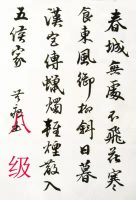 春城無處不飛花寒
食東風御柳斜日暮
漢宮傳蠟燭輕煙散入
五侯家
八级